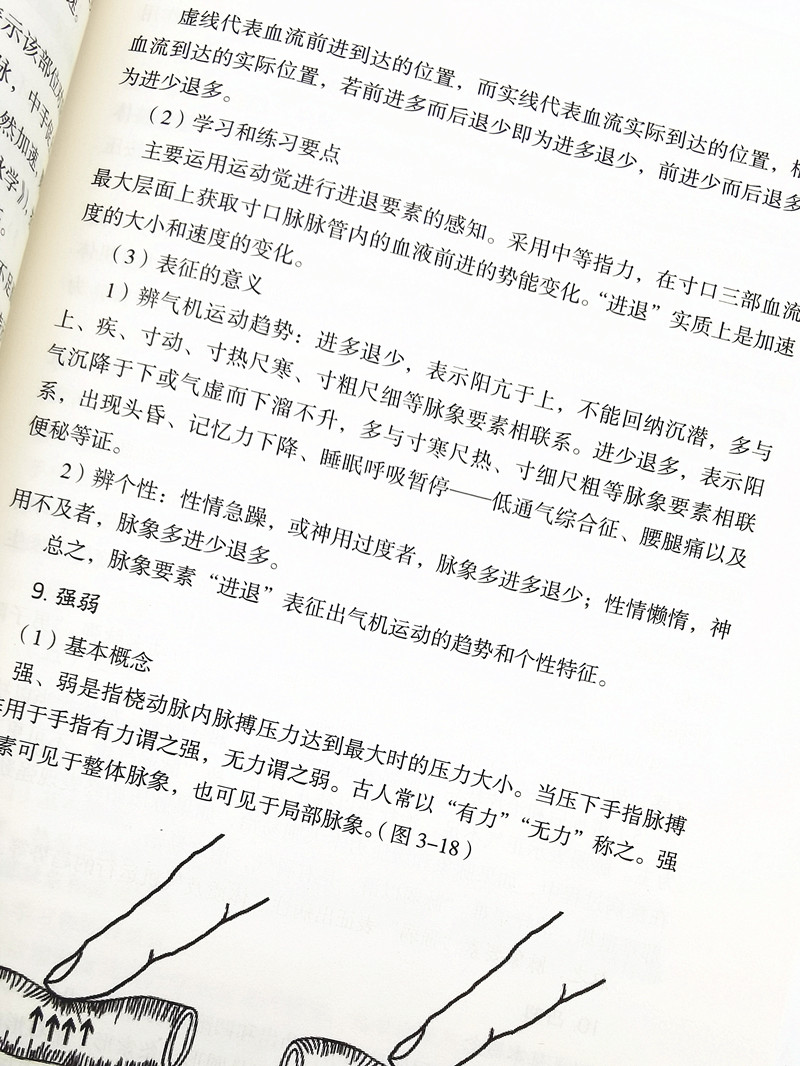 示该部位
脉,中手
然加速
脉学》)
不足
虚线代表血流前进到达的位置,而实线代表血流实际到达的位置,
血流到达的实际位置,若前进多而后退少即为进多退少,前进少而后退多
为进少退多。
(2)学习和练习要点
主要运用运动觉进行进退要素的感知。采用中等指力,在寸口三部血流
最大层面上获取寸口脉脉管内的血液前进的势能变化。“进退”实质上是加速
度的大小和速度的变化。
(3)表征的意义
1)辨气机运动趋势:进多退少,表示阳亢于上,不能回纳沉潜,多与
上、疾、寸动、寸热尺寒、寸粗尺细等脉象要素相联系。进少退多,表示阳
气沉降于下或气虚而下溜不升,多与寸寒尺热、寸细尺粗等脉象要素相联
系,出现头昏、记忆力下降、睡眠呼吸暂停——低通气综合征、腰腿痛以及
便秘等证。
2)辨个性:性情急躁,或神用过度者,脉象多进多退少;性情懒惰,神
用不及者,脉象多进少退多。
总之,脉象要素“进退”表征出气机运动的趋势和个性特征。
9. 强弱
(1)基本概念
强、弱是指桡动脉内脉搏压力达到最大时的压力大小。当压下手指脉搏
作用于手指有力谓之强,无力谓之弱。古人常以“有力”“无力”称之。强
素可见于整体脉象,也可见于局部脉象。(图3-18)